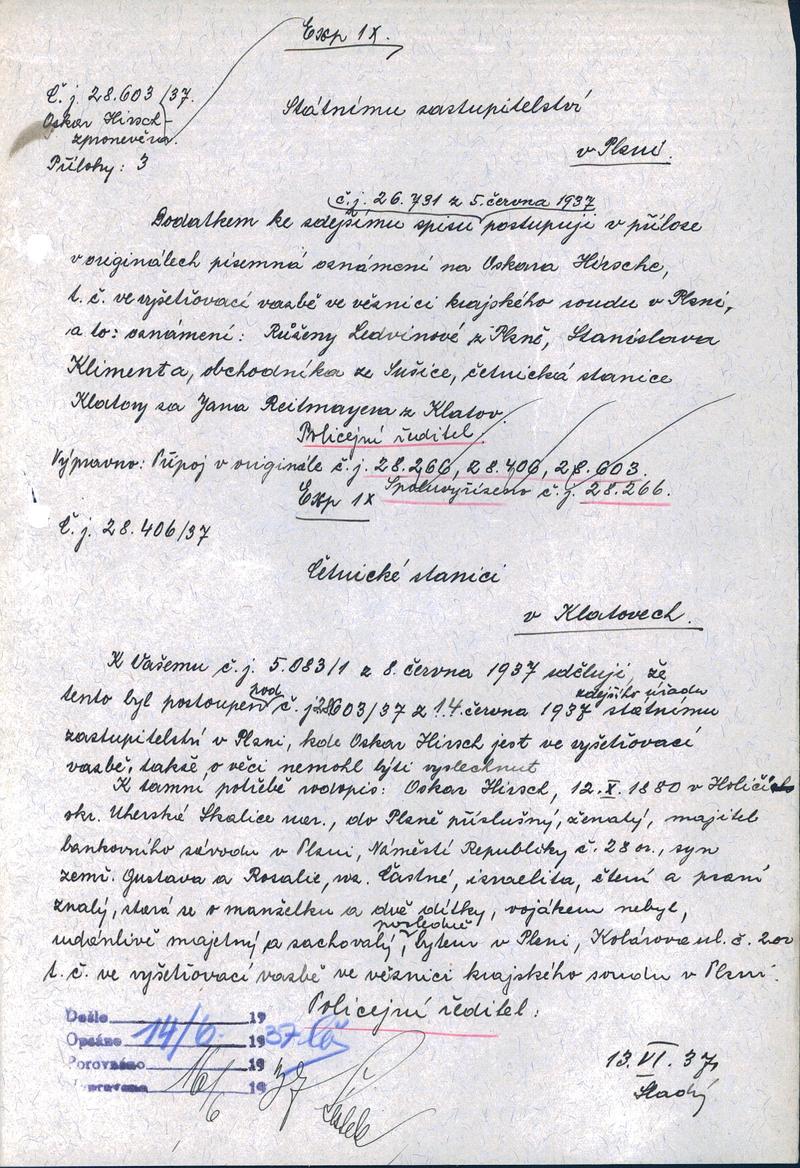 Exp 1x.
Č. j. 28.603/37.
Oskar Hirsch -
zpronevěra.
Přílohy: 3
Státnímu zastupitelství
v Plzni.
č.j. 26.731 z 5. června 1937
Dodatkem ke zdejšímu spisu postupuji v příloze
v originálech písemná oznámení na Oskara Hirsche,
t. č. ve vyšetřovací vazbě ve věznici krajského soudu v Plzni,
a to: oznámení: Růženy Ledvinové z Plzně, Stanislava
Klimenta, obchodníka ze Sušice, četnická stanice
Klatovy za Jana Reitmayera z Klatov.
Policejní ředitel.
Výpravno: Připoj v originále č.j. 28.266, 28.406, 28.603.
Spoluvyřízeno č.j. 28.266.
Exp 1x
Č. j. 28.406/37
Četnické stanici
v Klatovech.
K Vašemu č. j. 5.083/1 z 8. června 1937 sděluji, že
pod zdejšího úřadu
tento byl postoupen č. j. 28603/37 z 14. června 1937 státnímu
zastupitelství v Plzni, kde Oskar Hirsch jest ve vyšetřovací
vazbě, takže o věci nemohl býti vyslechnut
K tamní potřebě rodopis: Oskar Hirsch, 12. X. 1880 v Holíči
okr. Uherské Skalice nar., do Plzně příslušný, ženatý, majitel
bankovního závodu v Plzni, Náměstí Republiky č. 28 n., syn
zemř. Gustava a Rosalie, roz. Častné, israelita, čtení a psaní
znalý, stará se o manželku a dvě dítky, vojákem nebyl,
posledně
udánlivě majetný a zachovalý, bytem v Plzni, Kolárova ul. č.
t. č. ve vyšetřovací vazbě ve věznici krajského soudu v Plzni.
Policejní ředitel:
Došlo 19
Opsáno 14/6. 1937
Porovnáno 19
Vypraveno 16/6 1937
13. VI. 37